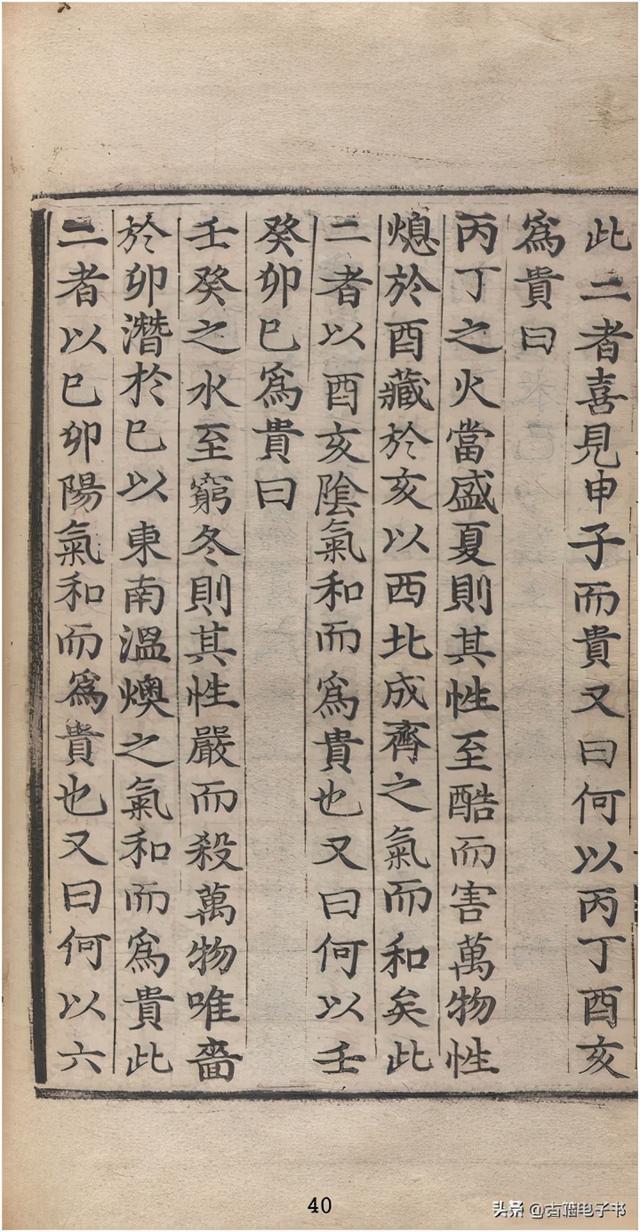 此二者喜見申子而貴又曰何以丙丁酉亥
爲貴曰
丙丁之火當盛夏則其性至酷而害萬物性
熄於酉藏於亥以西北成齊之氣而和矣此
二者以酉亥陰氣和而爲貴也又曰何以壬
癸卯巳爲貴曰
壬癸之水至窮冬則其性嚴而殺萬物唯嗇
於卯潛於巳以東南溫燠之氣和而爲貴此
二者以巳卯陽氣和而爲貴也又曰何以六
40
头条 @古籍电子书